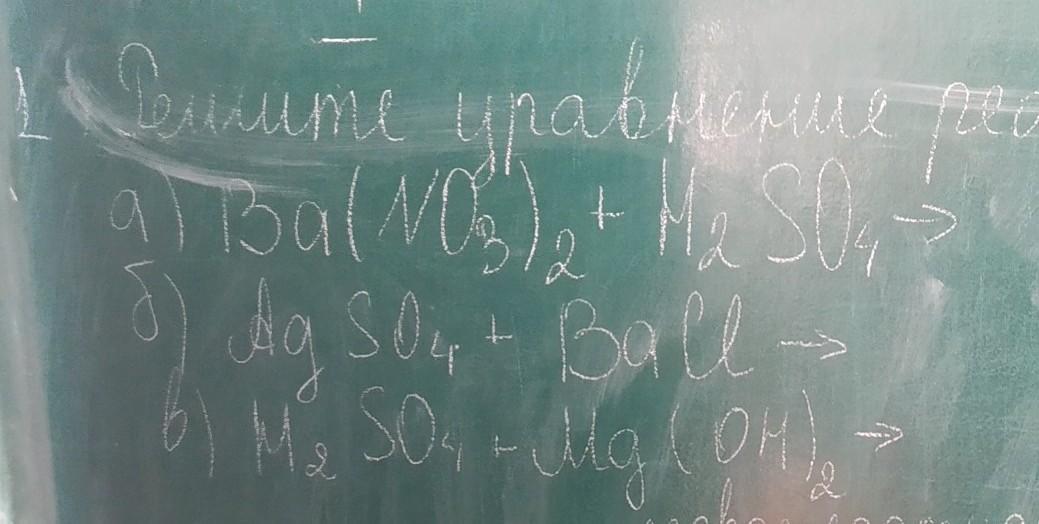 1 Решите уравнение реа
а) Ba(NO₃)₂ + H₂SO₄ →
б) AgSO₄ + BaCl →
в) H₂SO₄ + Mg(OH)₂ →